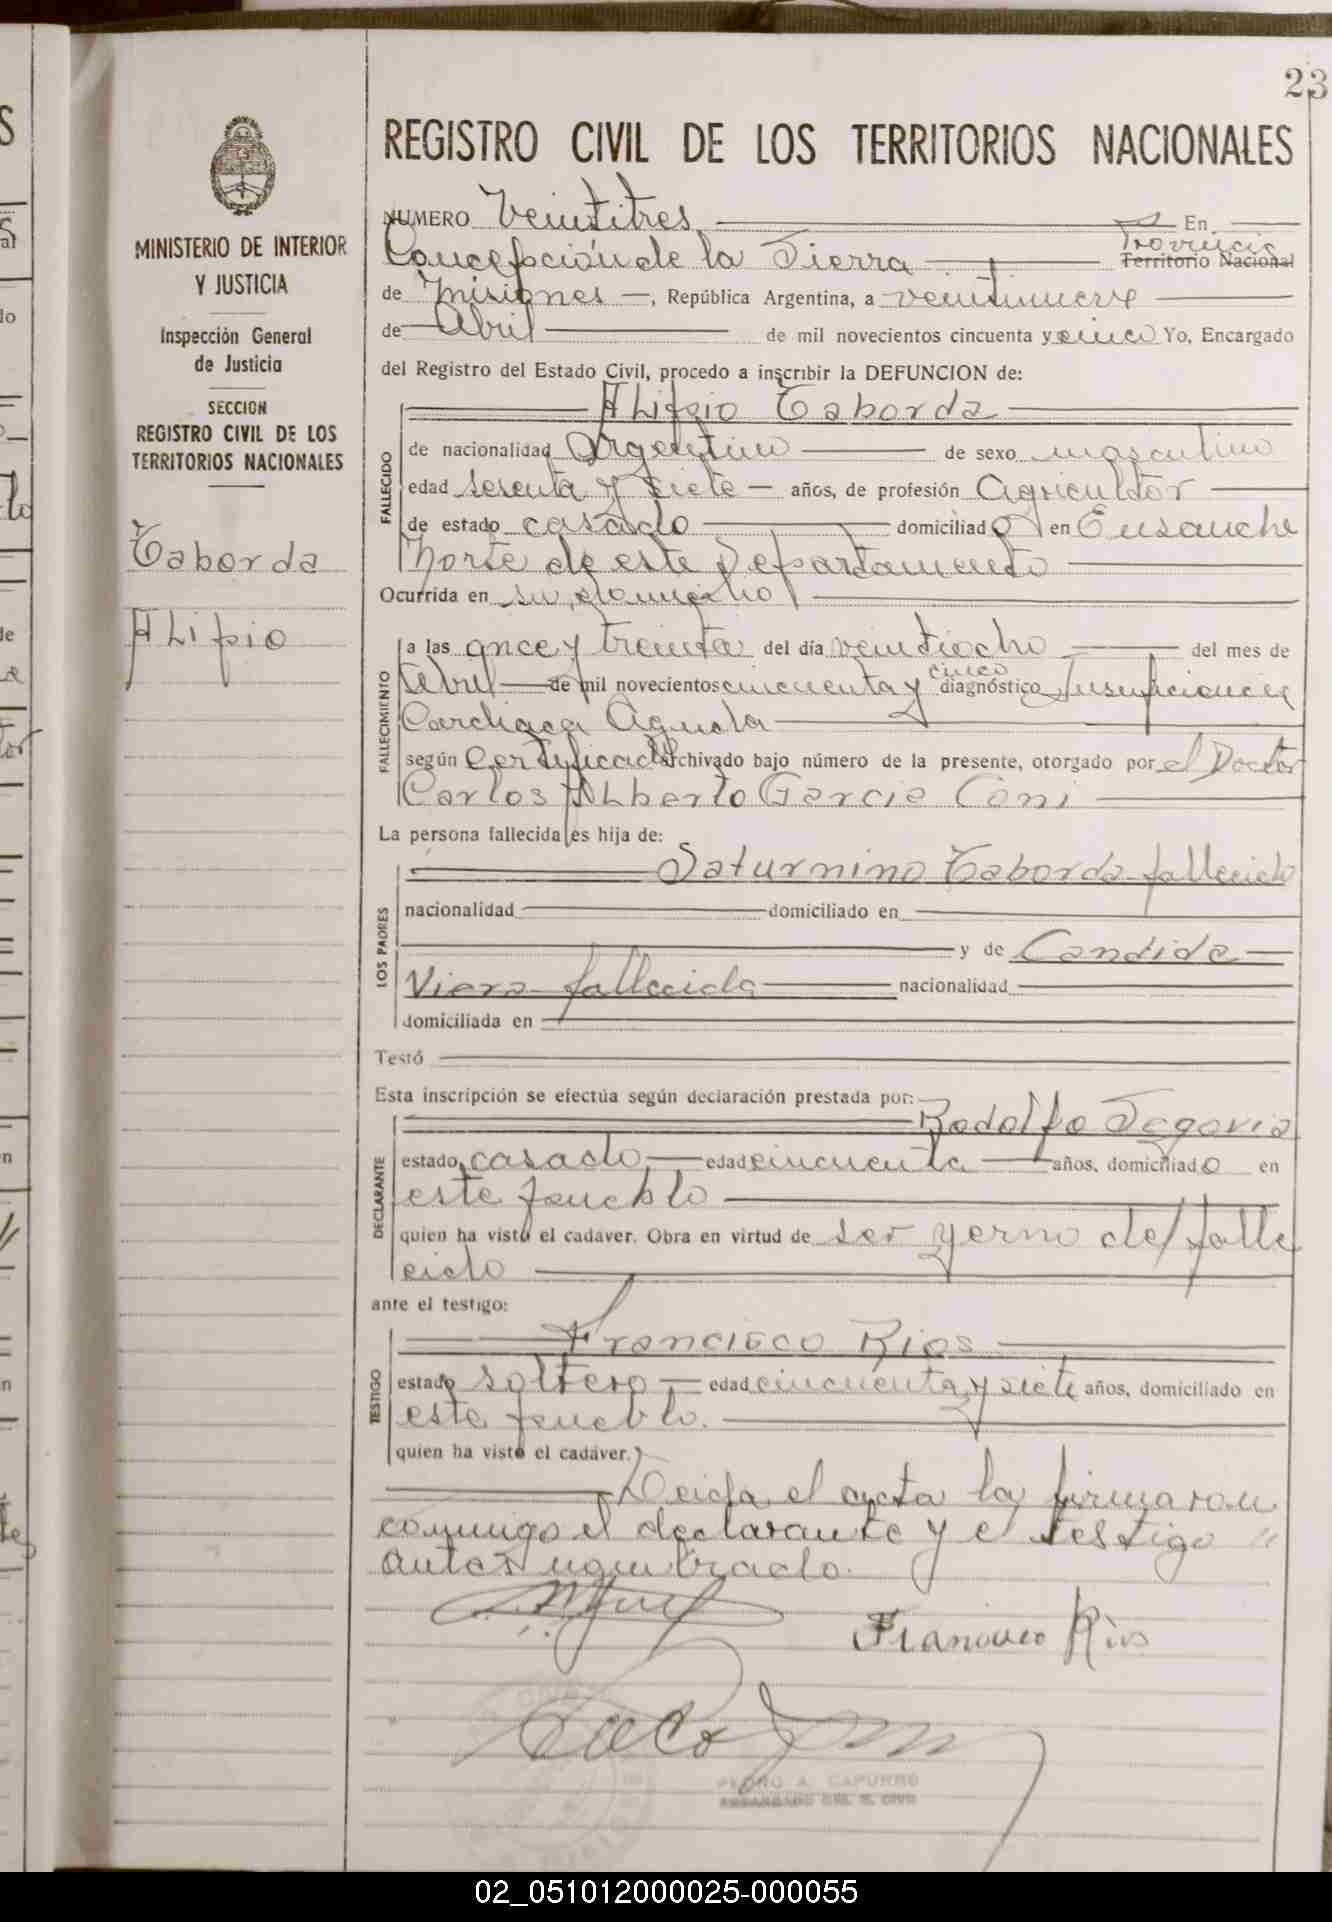 23
REGISTRO CIVIL DE LOS TERRITORIOS NACIONALES
MINISTERIO DE INTERIOR
Y JUSTICIA
Inspección General
de Justicia
SECCION
REGISTRO CIVIL DE LOS
TERRITORIOS NACIONALES
Taborda
Alipio
NUMERO Veintitres En
Concepción de la Sierra Provincia Territorio Nacional
de Misiones, República Argentina, a veintinueve
de Abril de mil novecientos cincuenta y cinco Yo, Encargado
del Registro del Estado Civil, procedo a inscribir la DEFUNCION de:
FALLECIDO
Alipio Taborda
de nacionalidad Argentino de sexo masculino
edad sesenta y siete años, de profesión Agricultor
de estado casado domiciliado en Ensanche
Norte de este Departamento
Ocurrida en su domicilio
FALLECIMIENTO
a las once y treinta del día veintiocho del mes de
Abril de mil novecientos cincuenta y cinco diagnóstico Insuficiencia
Cardiaca Aguda
según Certificado archivado bajo número de la presente, otorgado por el Doctor
Carlos Alberto Garcia Coni
La persona fallecida es hija de:
LOS PADRES
Saturnino Taborda fallecido
nacionalidad domiciliado en
y de Candida
Viera fallecida nacionalidad
domiciliada en
Testó
Esta inscripción se efectúa según declaración prestada por:
DECLARANTE
Rodolfo Segovia
estado casado edad cincuenta años, domiciliado en
este pueblo
quien ha visto el cadáver. Obra en virtud de ser yerno del falle
cido
ante el testigo:
TESTIGO
Francisco Rios
estado soltero edad cincuenta y siete años, domiciliado en
este pueblo.
quien ha visto el cadáver.
Leida el acta la firmaron
conmigo el declarante y el testigo
antes nombrado.
Francisco Rios
PEDRO A. CAPURRO
ENCARGADO DEL R. CIVIL
02_051012000025-000055